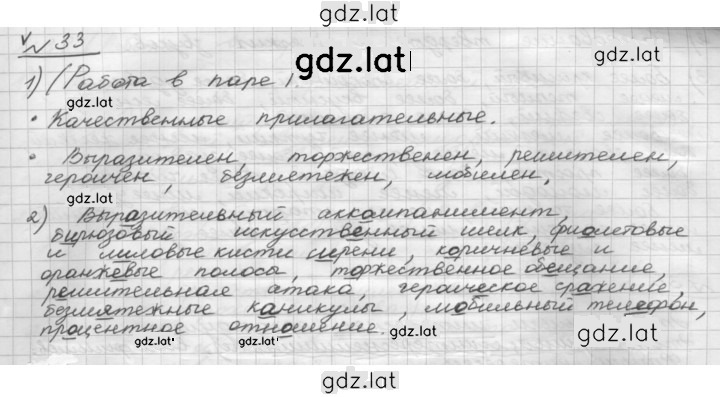 gdz.lat
√ № 33
gdz.lat
1) (Работа в паре).
gdz.lat
• Качественные прилагательные.
• Выразителен, торжественен, решителен,
героичен, безмятежен, мобилен.
gdz.lat
2) Выразительный аккомпанимент,
бирюзовый искусственный шелк, фиолетовые
и лиловые кисти сирени, коричневые и
оранжевые полосы, торжественное обещание,
решительная атака, героическое сражение,
безмятежные каникулы, мобильный телефон,
процентное отношение.
gdz.lat gdz.lat
gdz.lat